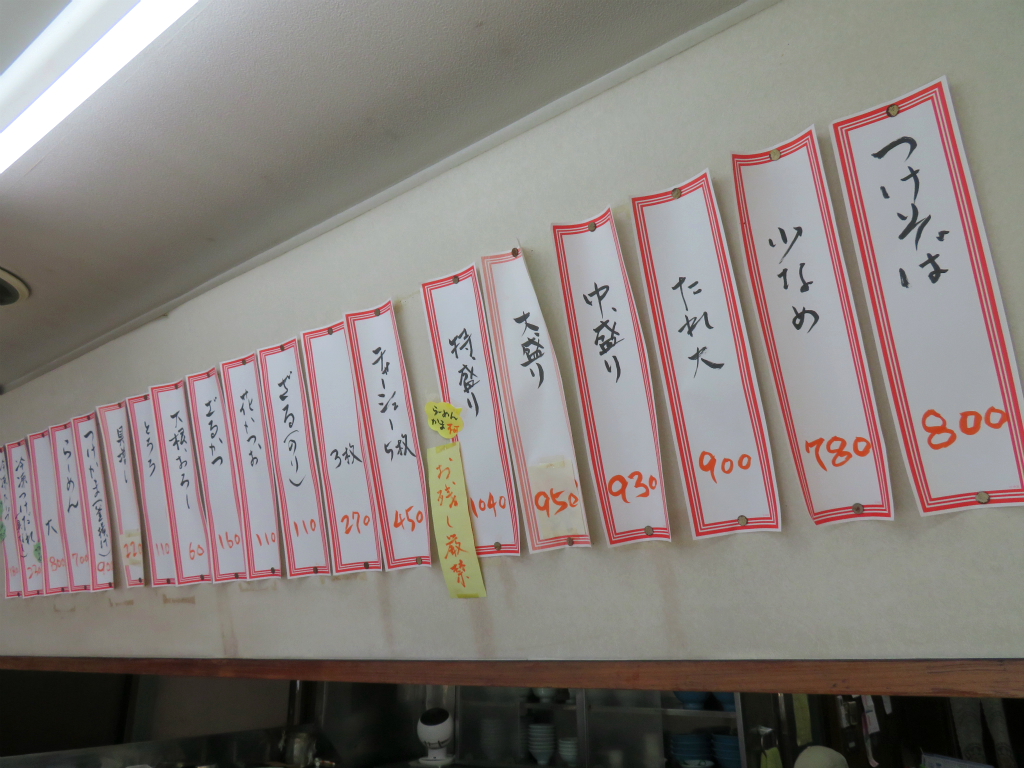 つけそば
800
少なめ
780
たれ大
900
中盛り
930
大盛り
950
特盛り
1040
らーめん
お残し厳禁
チャーシュー5枚
450
3枚
270
ざる(のり)
110
花かつお
110
ざるかつ
160
大根おろし
60
とろろ
110
220
らーめん
700
大
800